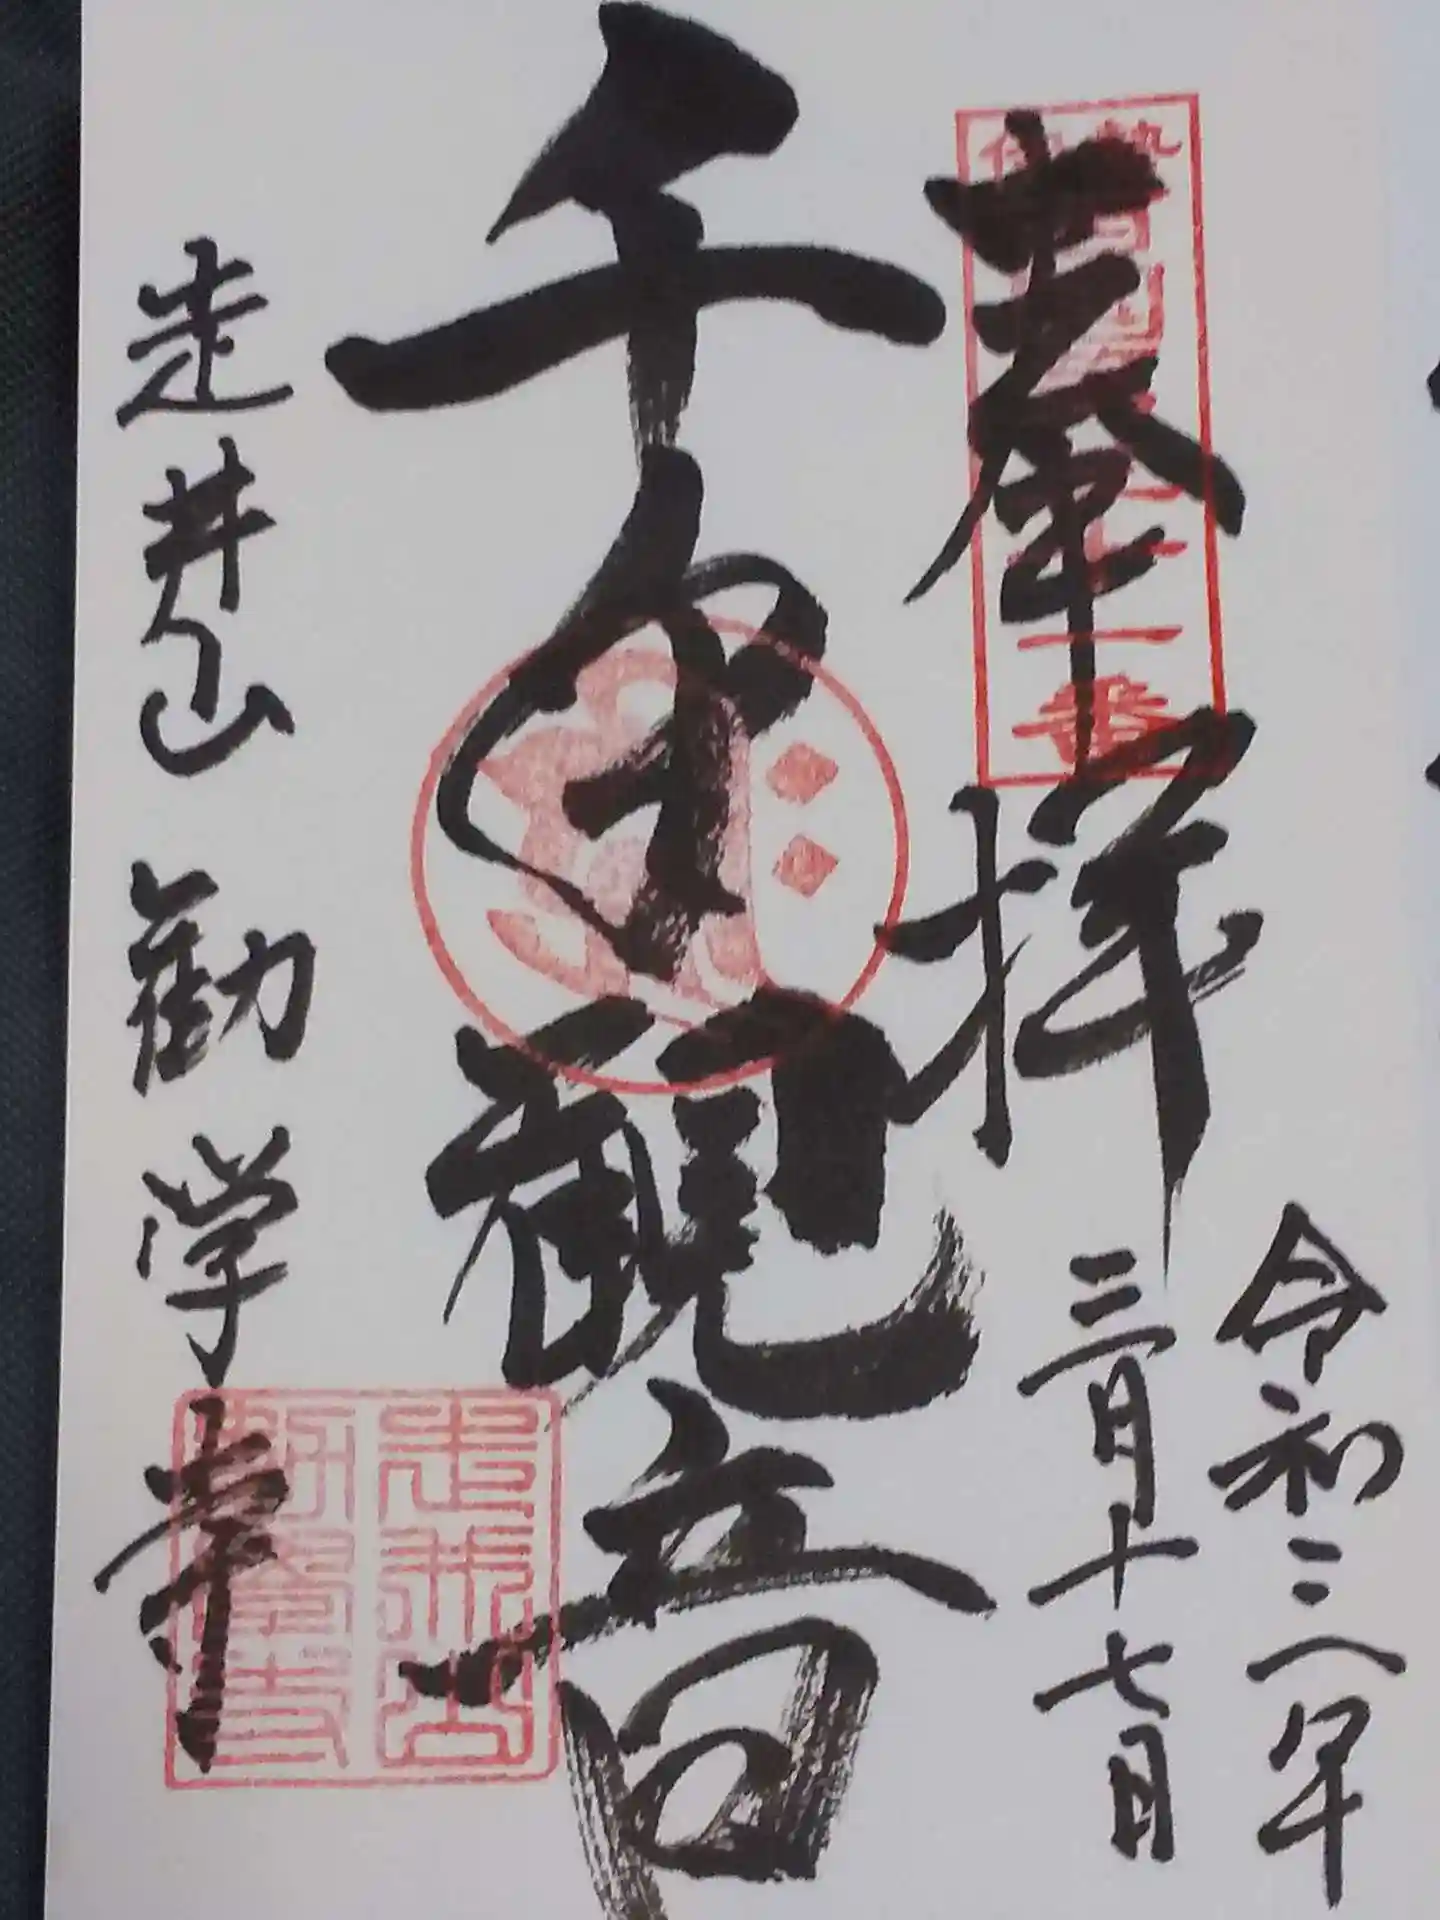 令和三年
三月十七日
奉拝
十一番
千手観音
走井山 勧学寺
走井山
勧学寺